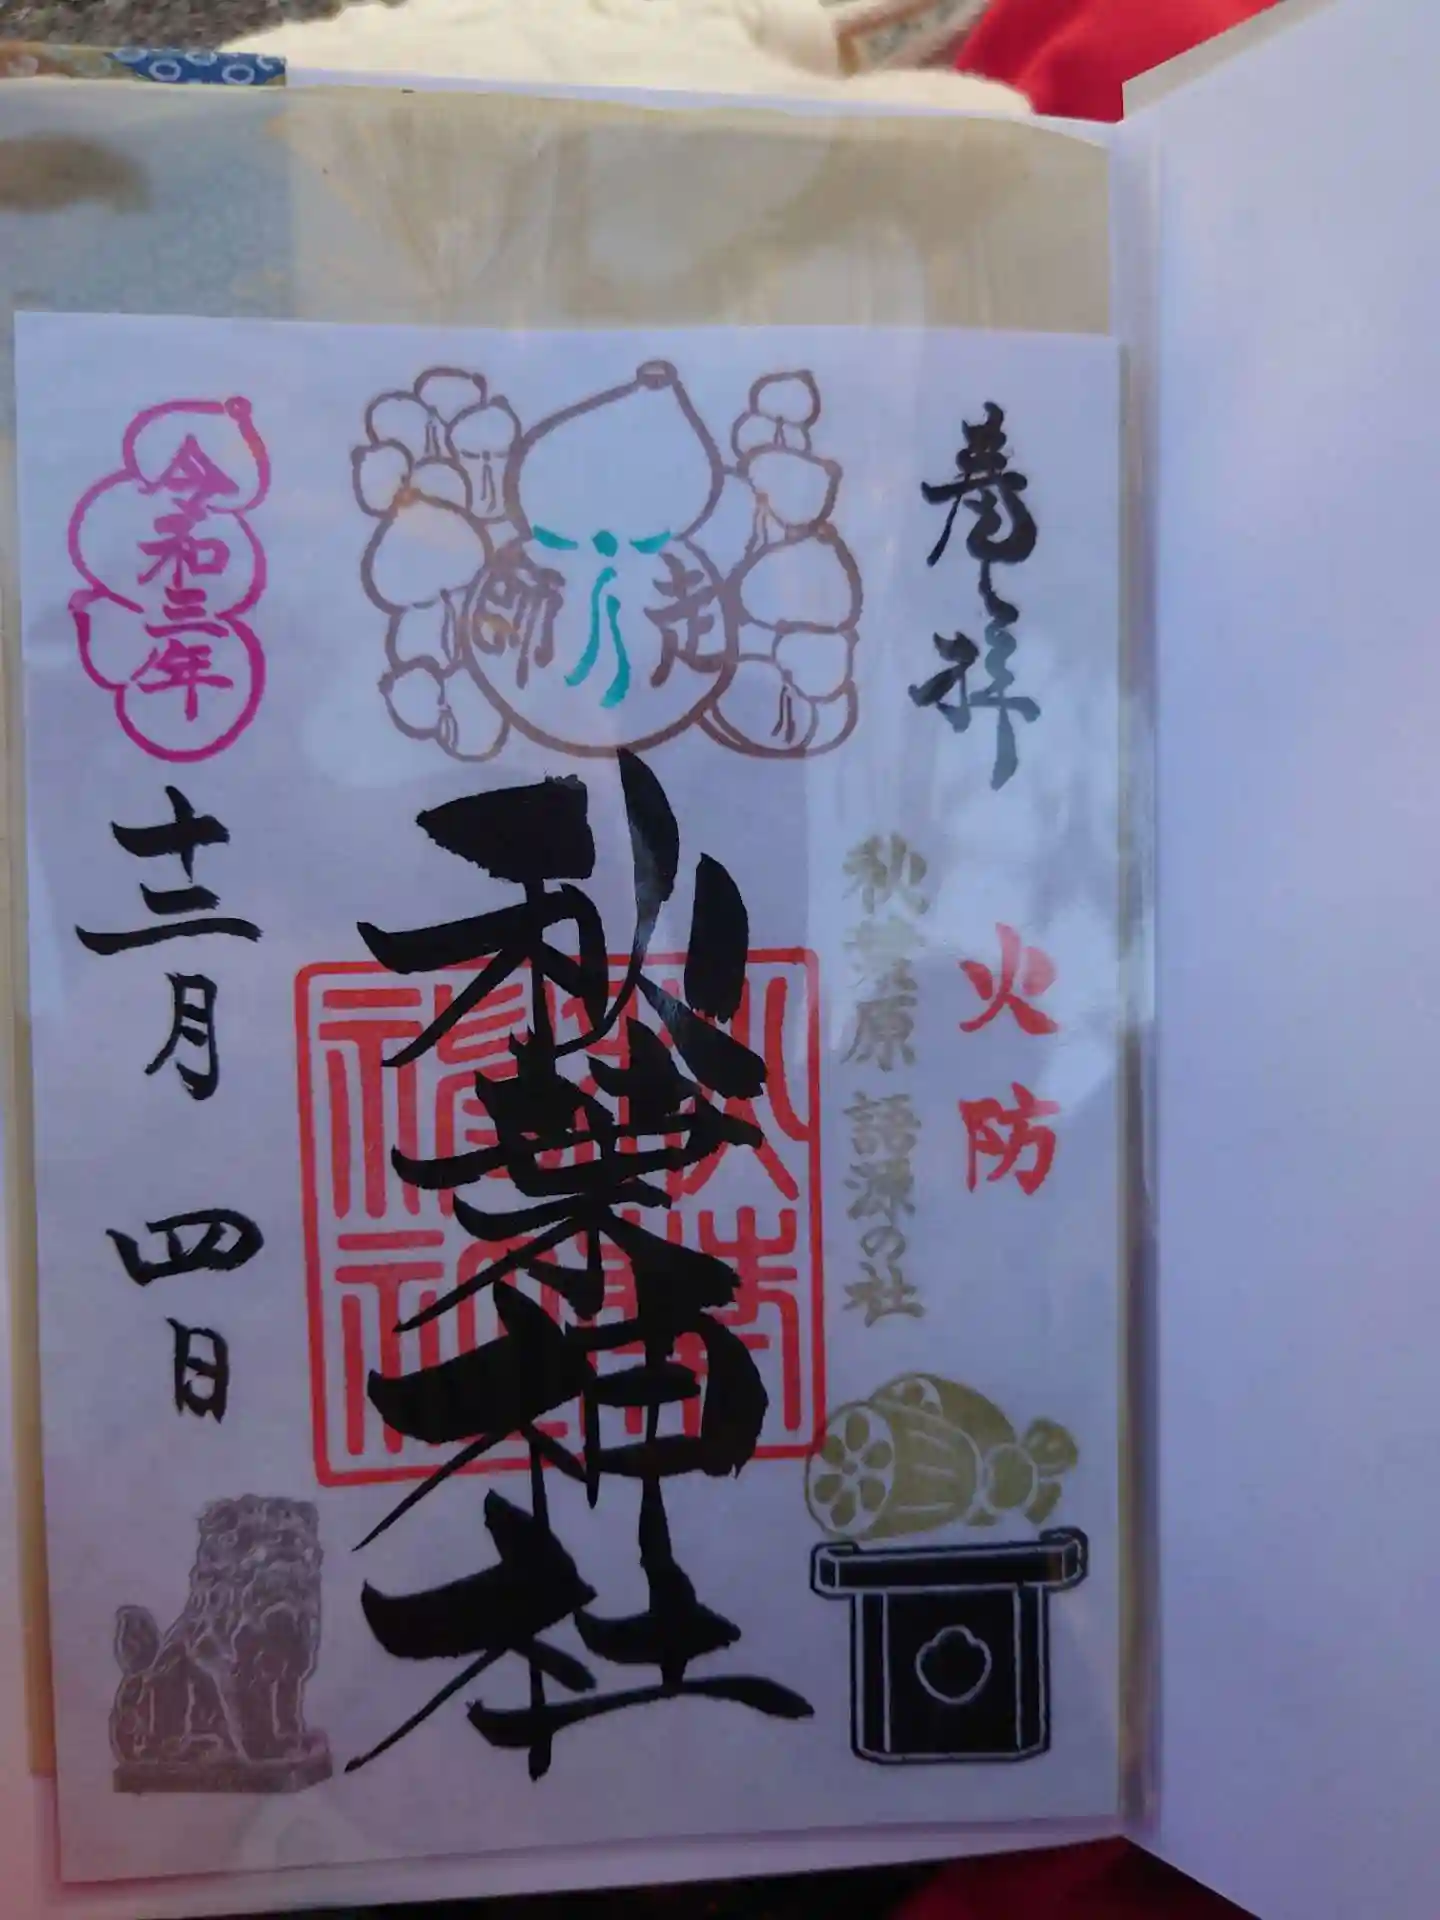 奉拝
火防
秋葉原 語源の社
走月師
秋葉神社
秋葉神社
令和三年
十二月 四日